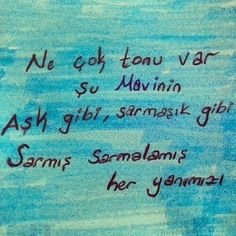 Ne çok tonu var
şu Mavinin
Aşk gibi, sarmaşık gibi
Sarmış sarmalamış
her yanımızı